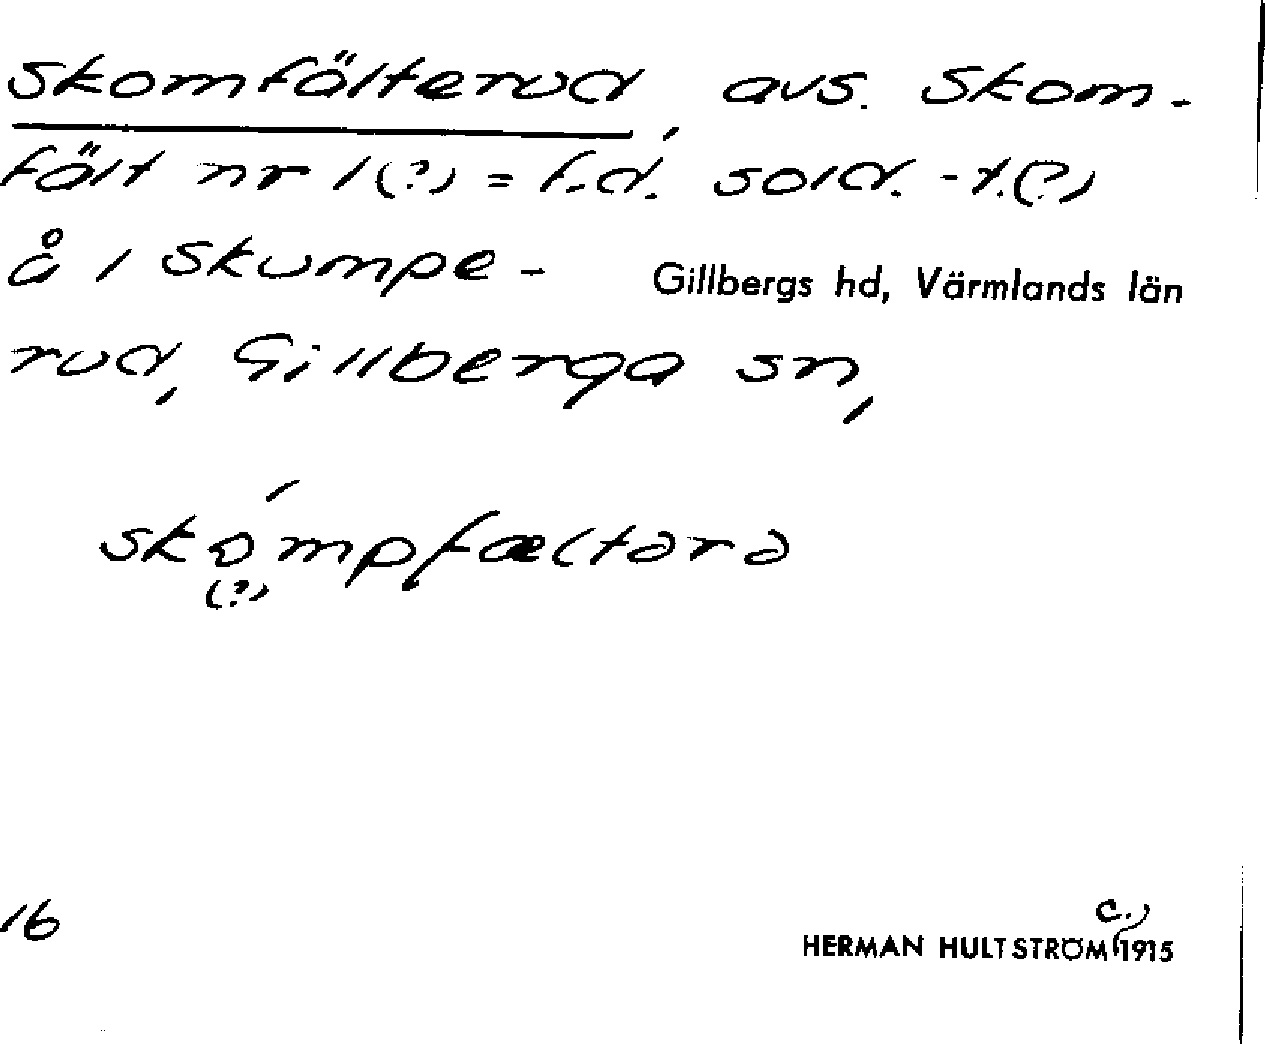 Skomfälterud, avs. Skom-
fält nr 1(?) = f.d. sold.-t.(?)
å 1 Skumpe-
Gillbergs hd, Värmlands län
rud, Gillberga sn,
skómpfæltərə
(?)
16
c.
HERMAN HULTSTRÖM 1915